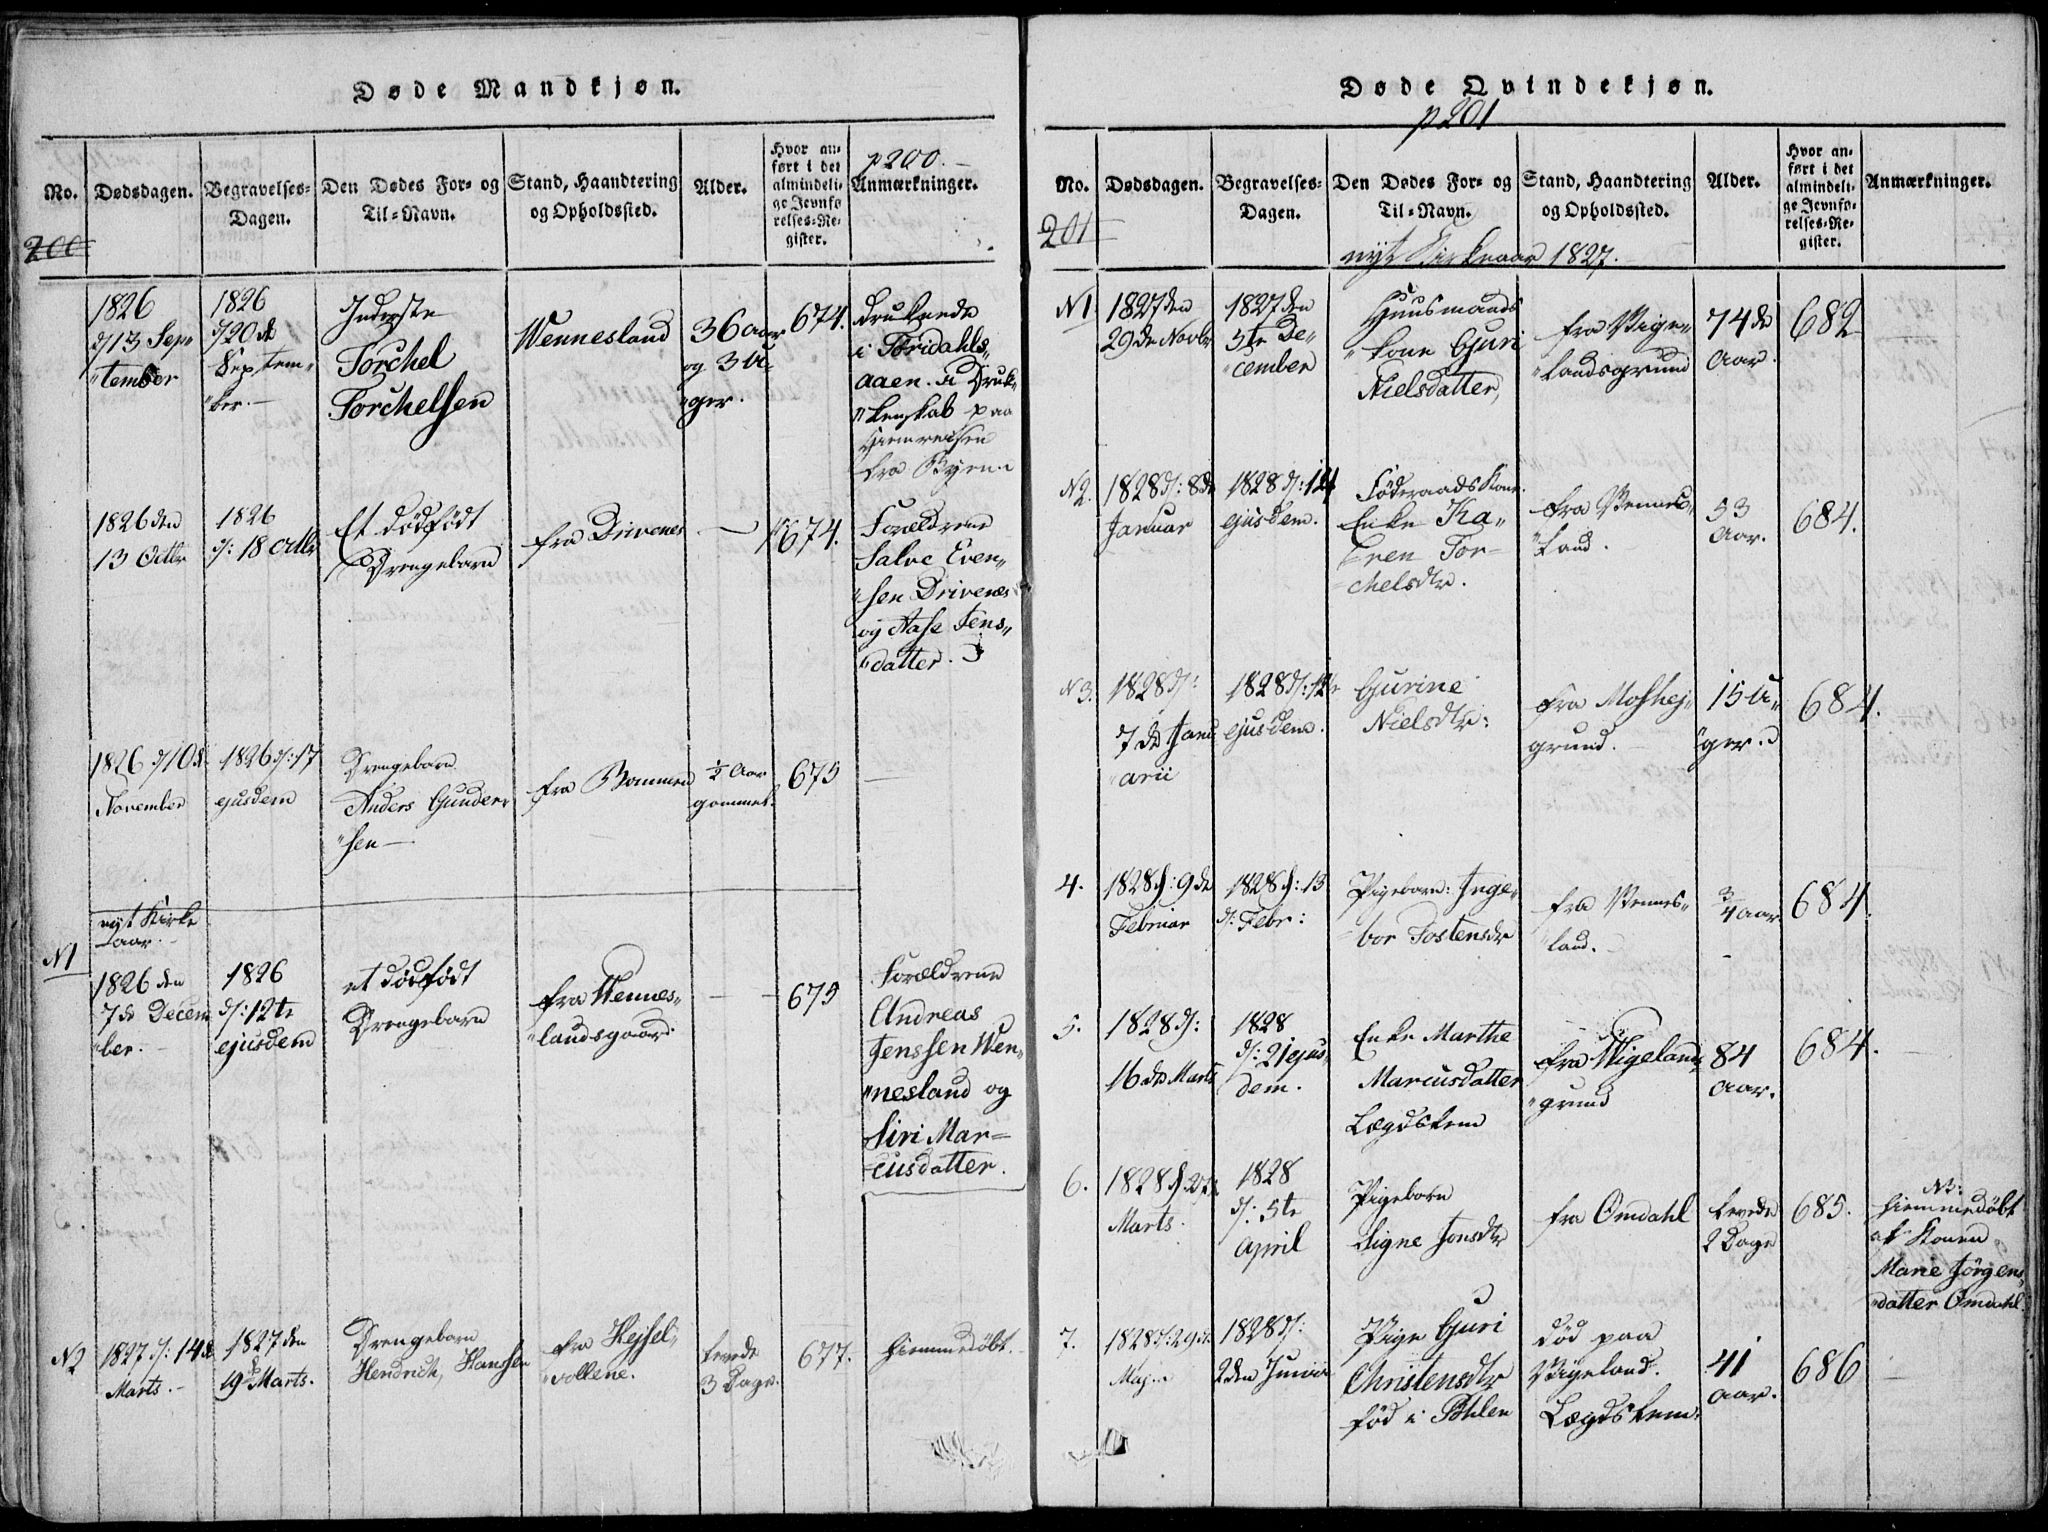 Døde Mandkjøn.
p 200.
No. Dødsdagen. Begravelses-Dagen. Den Dødes For- og Til-Navn. Stand, Haandtering og Opholdssted. Alder. Hvor anført i det almindelige Jevnførelses-Register. Anmærkninger.
200
1826
d/13 Sep„
„tember
1826
d/20de
Septem„
„ber.
Inderste
Torchel
Torchelsen
Wennesland
36 Aar
og 3 U„
„ger.
674.
druknede
i Torridahls„
aaen. i Druk„
„kenskab paa
Hiemreisen
fra Byen.
1826 den
13 Octbr
1826
d: 18 Octbr
Et dødfødt
Drengebarn
fra Drivenes
—
674.
Forældrene
Salve Even„
„sen Drivenes
og Aase Jens„
„datter.
1826 d/10de
November
1826 d: 17
ejusdem
Drengebarn
Anders Gunder
„sen —
fra Bommen
½ Aar
gammel.
675
—
nyt Kirke
aar.
N1
1826 den
7de Decem
„ber.
1826
d: 12te
ejusdem
et dødfødt
Drengebarn
fra Wennes„
„landsgaard.
— —
675
Forældrene
Andreas
Jenssen Wen„
„nesland og
Siri Mar=
=cusdatter.
N2
1827 d: 14de
Marts.
1827 den
19de Marts.
Drengebarn
Hendrich Hanssen
fra Hejsel„
„vollene.
levede
3 Dage.
677.
hiemmedøbt.
Døde Qvindekjøn.
p 201
No. Dødsdagen. Begravelses-Dagen. Den Dødes For- og Til-Navn. Stand, Haandtering og Opholdssted. Alder. Hvor anført i det almindelige Jevnførelses-Register. Anmærkninger.
201
nyt Kirkeaar 1827.
N1
1827 den
29de Novbr
1827 den
5te De„
„cember
Huusmands
„kone Guri
Nielsdatter,
fra Vige„
„landsgrund
74de
Aar.
682
N2.
1828 d: 8de
Januar
1828 d: 14
ejusdem.
Föderaads Kone
Enke Ka„
„ren Tor=
chelsdtr.
fra Vennes„
„land.
53
Aar.
684.
N3.
1828 d:
7de Janu
„arii
1828 d: 12te
ejusdem.
Gurine
Nielsdtr:
fra Moshej„
grund.
15 U„
„ger.
684.
4.
1828 d: 9de
Februar
1828 d: 13
d: Febr:
Pigebarn: Inge„
bor Tostensdtr
fra Vennes„
land.
3/4 Aar
684.
5.
1828 d:
16de Marts
1828
d: 21 ejus„
dem.
Enke Marthe
Marcusdatter
Lægdslem
fra Wigeland„
„grund
84
Aar.
684.
6.
1828 d:
Marts.
1828
d: 5te
April
Pigebarn
Signe Jonsdtr
fra Omdahl
levede
2 Dage
685.
NB:
hiemmedøbt
af Konen
Marie Jørgens„
„datter Omdahl.
7.
1828 d: 29de
Maj
1828 d:
2den Junii
Pige Guri
Christensdtr
fød i
død paa
Vigeland.
Lægdslem.
41
Aar.
686
—